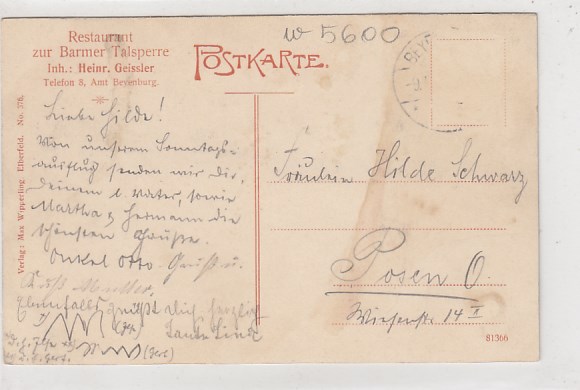 Restaurant
zur Barmer Talsperre
Inh.: Heinr. Geissler
Telefon 8, Amt Beyenburg.
POSTKARTE.
W 5600
BEYE
Liebe Hilde!
Von unserem Sonntags-
ausflug senden wir Dir,
Deinem l. Vater, sowie
Martha & Hermann die
schönsten Grüße.
Onkel Otto. Gruß u.
Kuß
Ebenfalls grüßt Dich herzlich
Tante
Fräulein Hilde Schwarz
Posen O.
Wiesenstr. 14 II
Verlag: Max Wipperling Elberfeld. No. 376.
81366